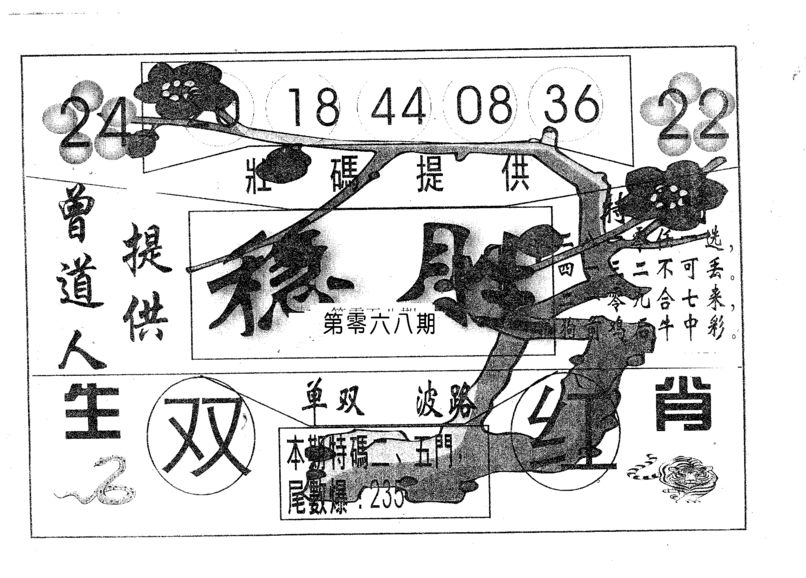 24
18 44 08 36
22
壯碼提供
曾道人
提供
稳胜
第零六八期
特
选,
四 二不可丢。
零九合七来,
狗 鸡 牛中彩。
生
双
单双 波路
红
肖
本期特碼二、五門,
尾數爆:235